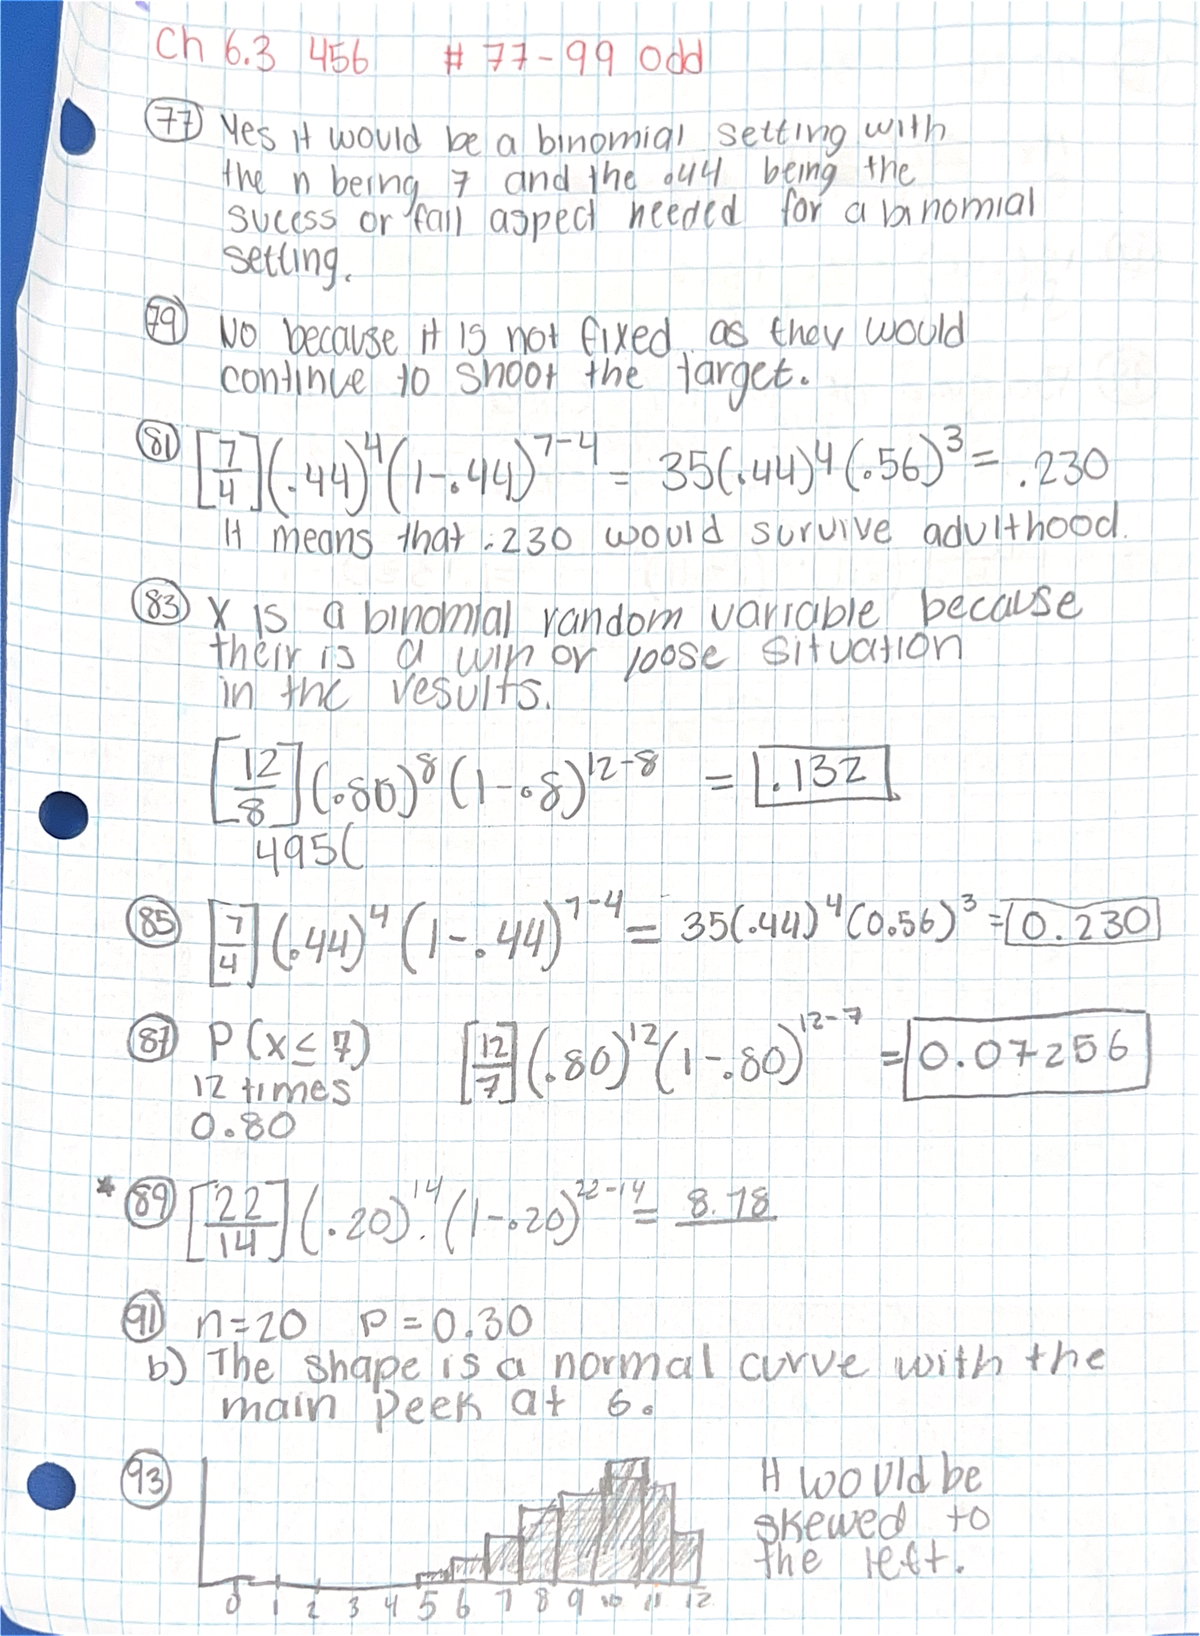 Ch 6.3 456 # 77-99 Odd
77 Yes it would be a binomial setting with
the n being 7 and the .44 being the
sucess or fail aspect needed for a binomial
setting.
79 No because it is not fixed as they would
continue to shoot the target.
81 [7/4](.44)^4(1-.44)^7-4 = 35(.44)^4(.56)^3 = .230
It means that .230 would survive adulthood.
83 X is a binomial random variable because
their is a win or loose situation
in the results.
[12/8](.80)^8(1-.8)^12-8 = .132
495(
85 [7/4](.44)^4(1-.44)^7-4 = 35(.44)^4(0.56)^3 = 0.230
87 P(x≤7) [12/7](.80)^12(1-.80)^12-7 = 0.07256
12 times
0.80
* 89 [22/14](.20)^14.(1-.20)^22-14 = 8.78
91 n=20 P=0.30
b) The shape is a normal curve with the
main peek at 6.
93 It would be
skewed to
the left.
0 1 2 3 4 5 6 7 8 9 10 11 12